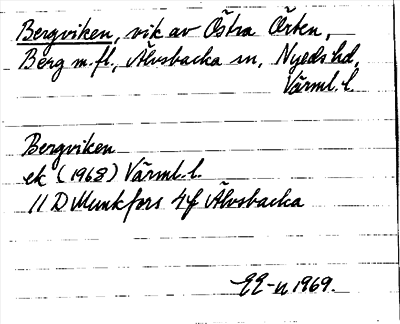 Bergviken, vik av Östra Örten,
Berg m.fl., Älvsbacka sn, Nyeds hd,
Värml. l.
Bergviken
ek (1968) Värml. l.
11 D Munkfors 4f Älvsbacka
1969.